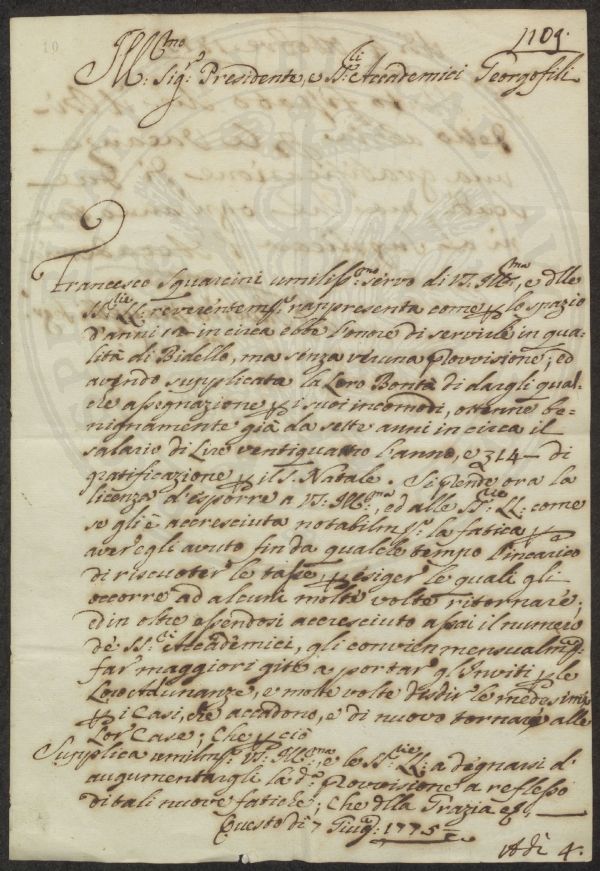 10
1109.
Ill:mo Sig:r Presidente, e SS:ri Accademici Georgofili
Francesco Squarcini umiliss:mo servo di V.S. Ill:ma, e dlle
SS:rie LL: reverentem:e rappresenta come p lo spazio
d'anni 12 in circa ebbe l'onore di servirle in qua-
lità di Bidello, ma senza veruna provvisione; ed
avendo supplicata la Loro Bontà di dargli qual-
che assegnazione p i suoi incomodi, ottenne be-
nignamente già da sette anni in circa il
salario di Lire ventiquattro l'anno, e £ 14 — di
gratificazione p il S. Natale. Si prende ora la
licenza d'esporre a V.S. Ill:ma, ed alle SS:rie LL: come
se gli è accresciuta notabilm:e la fatica p
aver'egli avuto fin da qualche tempo l'incarico
di riscuoter le tasse, p esiger le quali gli
occorre ad alcuni molte volte ritornare;
ed in oltre essendosi accresciuto assai il numero
de' SS:ri Accademici, gli convien mensualm:e
far maggiori gite a portar gl'Inviti p le
Loro Adunanze, e molte volte disdir le medesime
p i Casi, che accadono, e di nuovo tornare alle
Lor Case; che p ciò
Supplica umilm:e V.S. Ill:ma, e le SS:rie LL: a degnarsi d'
augumentargli la d:a provvisione a reflesso
di tali nuove fatiche; che dlla Grazia &c.
Questo dì 7 Giug:o 1775
Adì 4.